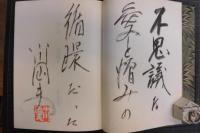 不思議な
愛と憎みの
循環だった